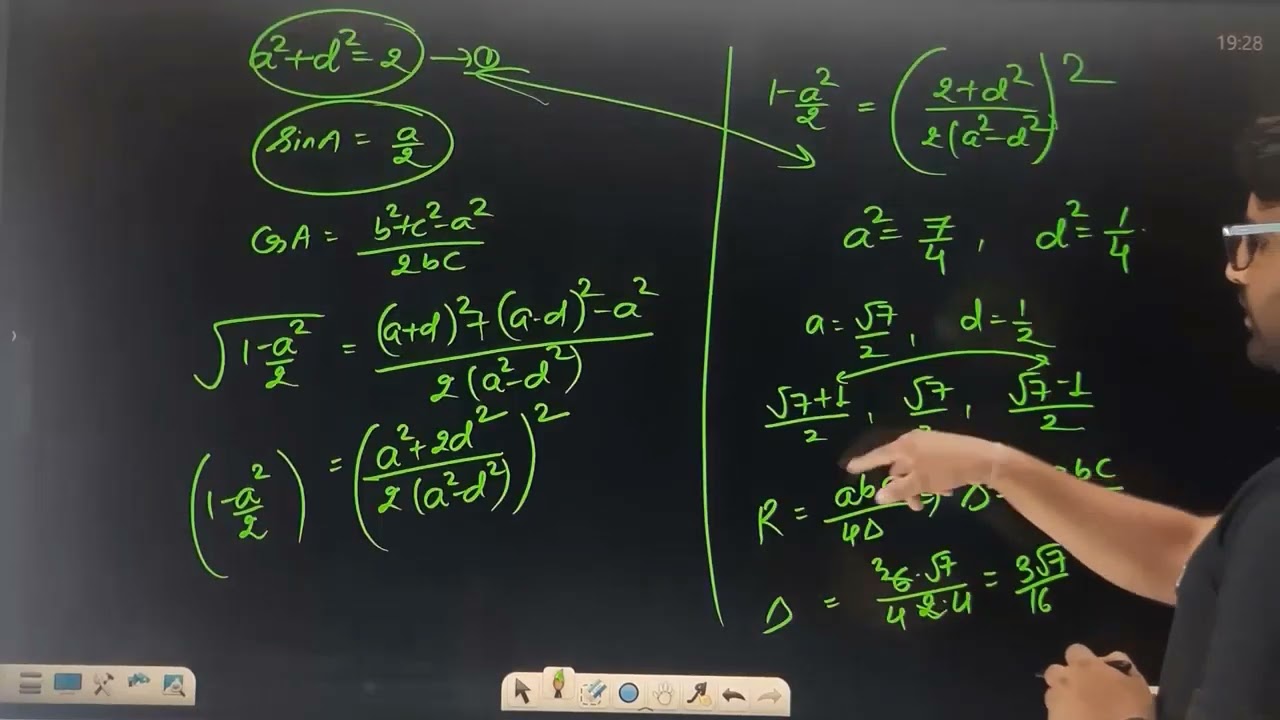 a²+d²=2 → ①
SinA = a/2
CosA = (b²+c²-a²)/2bc
√(1-a²/2) = ((a+d)²+(a-d)²-a²)/2(a²-d²)
(1-a²/2) = ((a²+2d²)/2(a²-d²))²
19:28
1-a²/2 = ((2+d²)/2(a²-d²))²
a²=7/4, d²=1/4
a=√7/2, d=1/2
(√7+1)/2, √7/2, (√7-1)/2
R = abc/4Δ
Δ = 36·√7/4·2·4 = 3√7/16